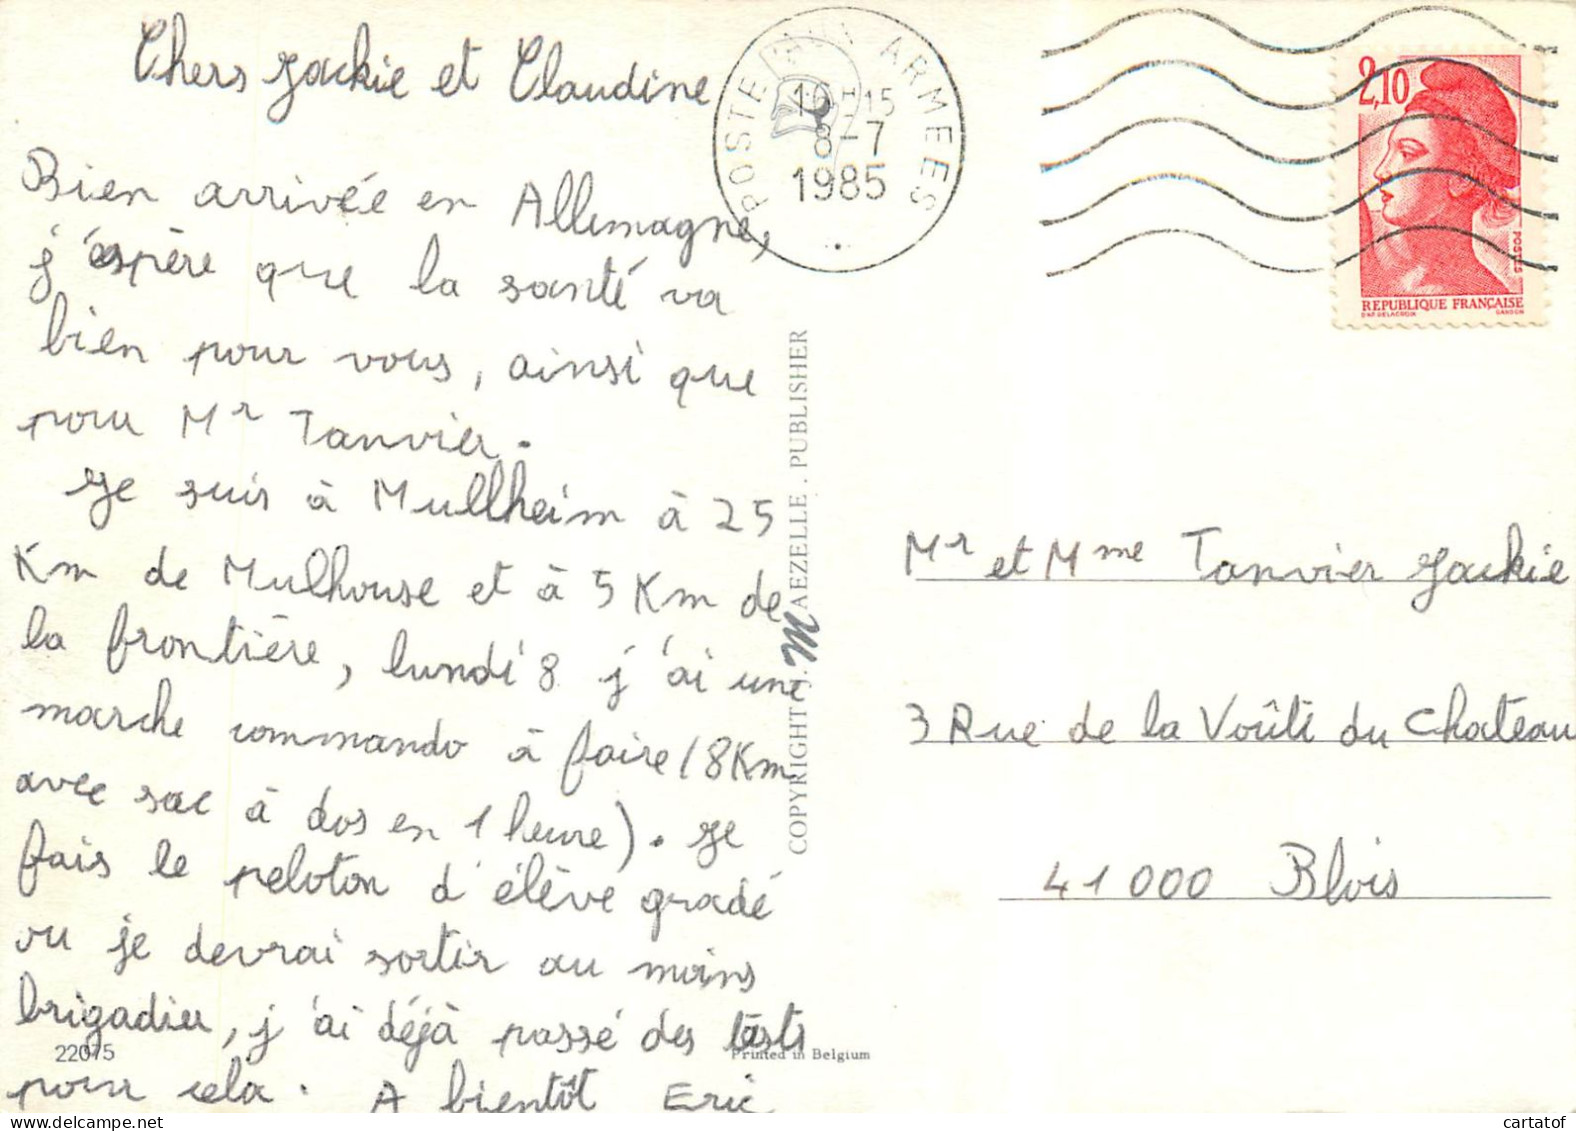 Chers Jackie et Claudine
Bien arrivée en Allemagne,
j'espère que la santé va
bien pour vous, ainsi que
pour Mr Tanvier.
Je suis à Mullheim à 25
Km de Mulhouse et à 5 Km de
la frontière, lundi 8 j'ai une
marche commando à faire (8Km
avec sac à dos en 1 heure). Je
fais le peloton d'élève gradé
ou je devrai sortir au moins
brigadier, j'ai déjà passé des tests
pour cela. A bientôt Eric
22075
Printed in Belgium
COPYRIGHT J. MAEZELLE . PUBLISHER
POSTE AUX ARMEES
16H15
8-7
1985
2,10
POSTES
REPUBLIQUE FRANÇAISE
D'AP. DELACROIX GANDON
Mr et Mme Tanvier Jackie
3 Rue de la Voûte du Chateau
41000 Blois
cartatof